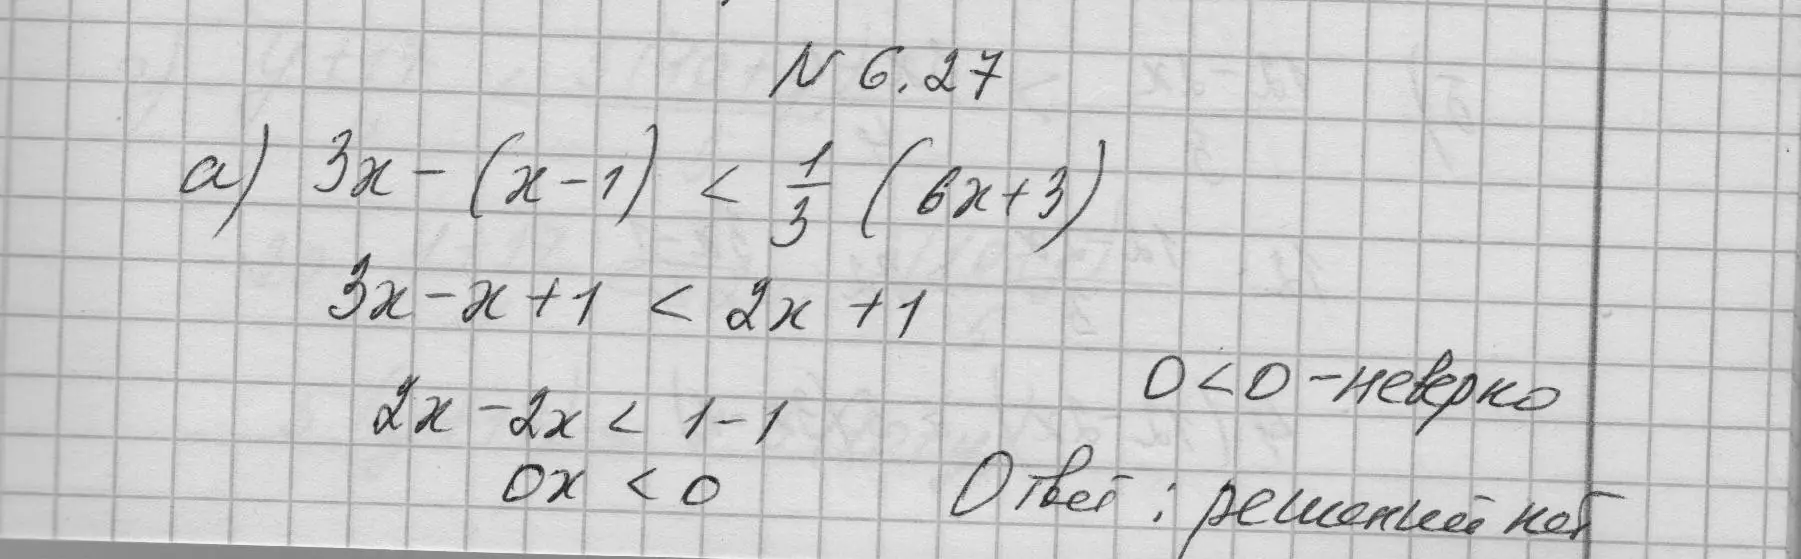 N 6.27
а) 3x - (x - 1) < 1/3 (6x + 3)
3x - x + 1 < 2x + 1
2x - 2x < 1 - 1
0x < 0
0 < 0 - неверно
Ответ: решений нет